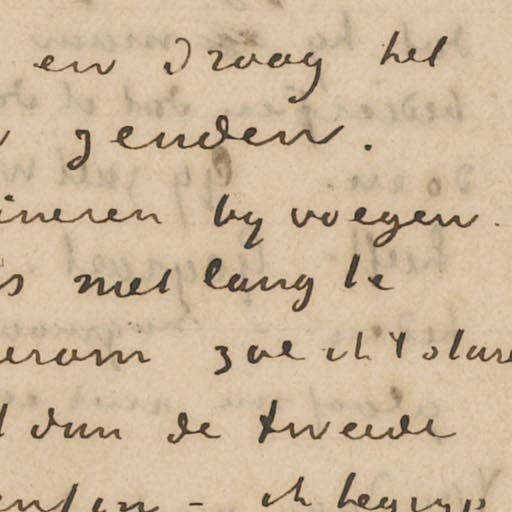 en vraag het
zenden.
ineren by voegen.
is niet lang te
erom zoe ik 't stur
dan de tweede
enfin - ik begryp